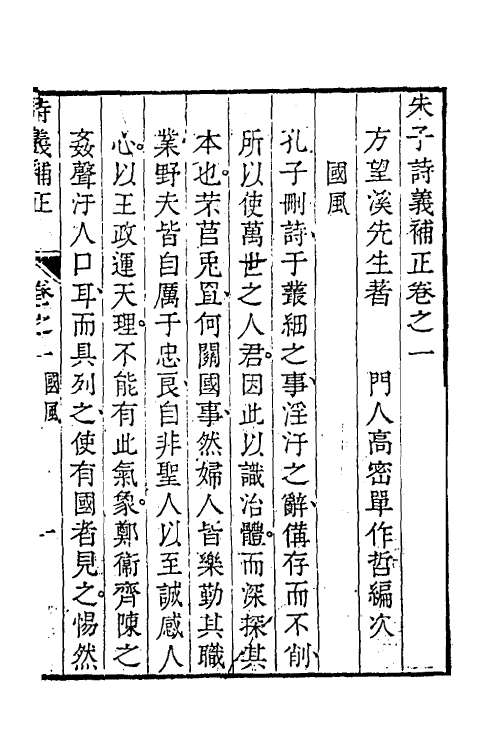 朱子詩義補正卷之一
方望溪先生著　門人高密單作哲編次
國風
孔子刪詩于叢細之事、淫汙之辭、備存而不削、
所以使萬世之人君。因此以識治體。而深探其
本也。芣苢兎罝、何關國事、然婦人皆樂勤其職
業野夫皆自厲于忠良、自非聖人以至誠感人
心。以王政運天理。不能有此氣象。鄭衞齊陳之
姦聲汙人口耳、而具列之、使有國者見之。惕然
詩義補正　卷之一　國風　一